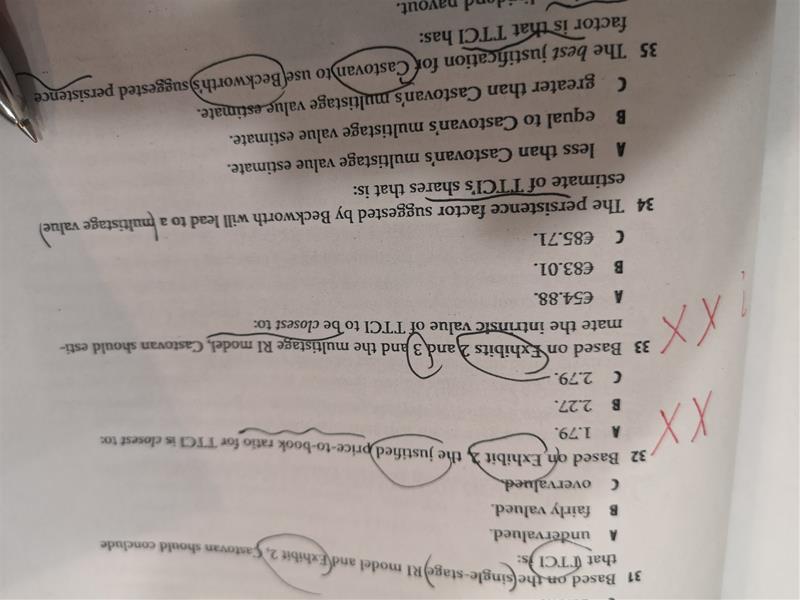 31 Based on the single-stage RI model and Exhibit 2, Castovan should conclude
that TTCI is:
A undervalued.
B fairly valued.
C overvalued.
32 Based on Exhibit 2, the justified price-to-book ratio for TTCI is closest to:
A 1.79.
B 2.27.
C 2.79.
33 Based on Exhibits 2 and 3 and the multistage RI model, Castovan should esti-
mate the intrinsic value of TTCI to be closest to:
A €54.88.
B €83.01.
C €85.71.
34 The persistence factor suggested by Beckworth will lead to a multistage value
estimate of TTCI's shares that is:
A less than Castovan's multistage value estimate.
B equal to Castovan's multistage value estimate.
C greater than Castovan's multistage value estimate.
35 The best justification for Castovan to use Beckworth's suggested persistence
factor is that TTCI has:
payout.